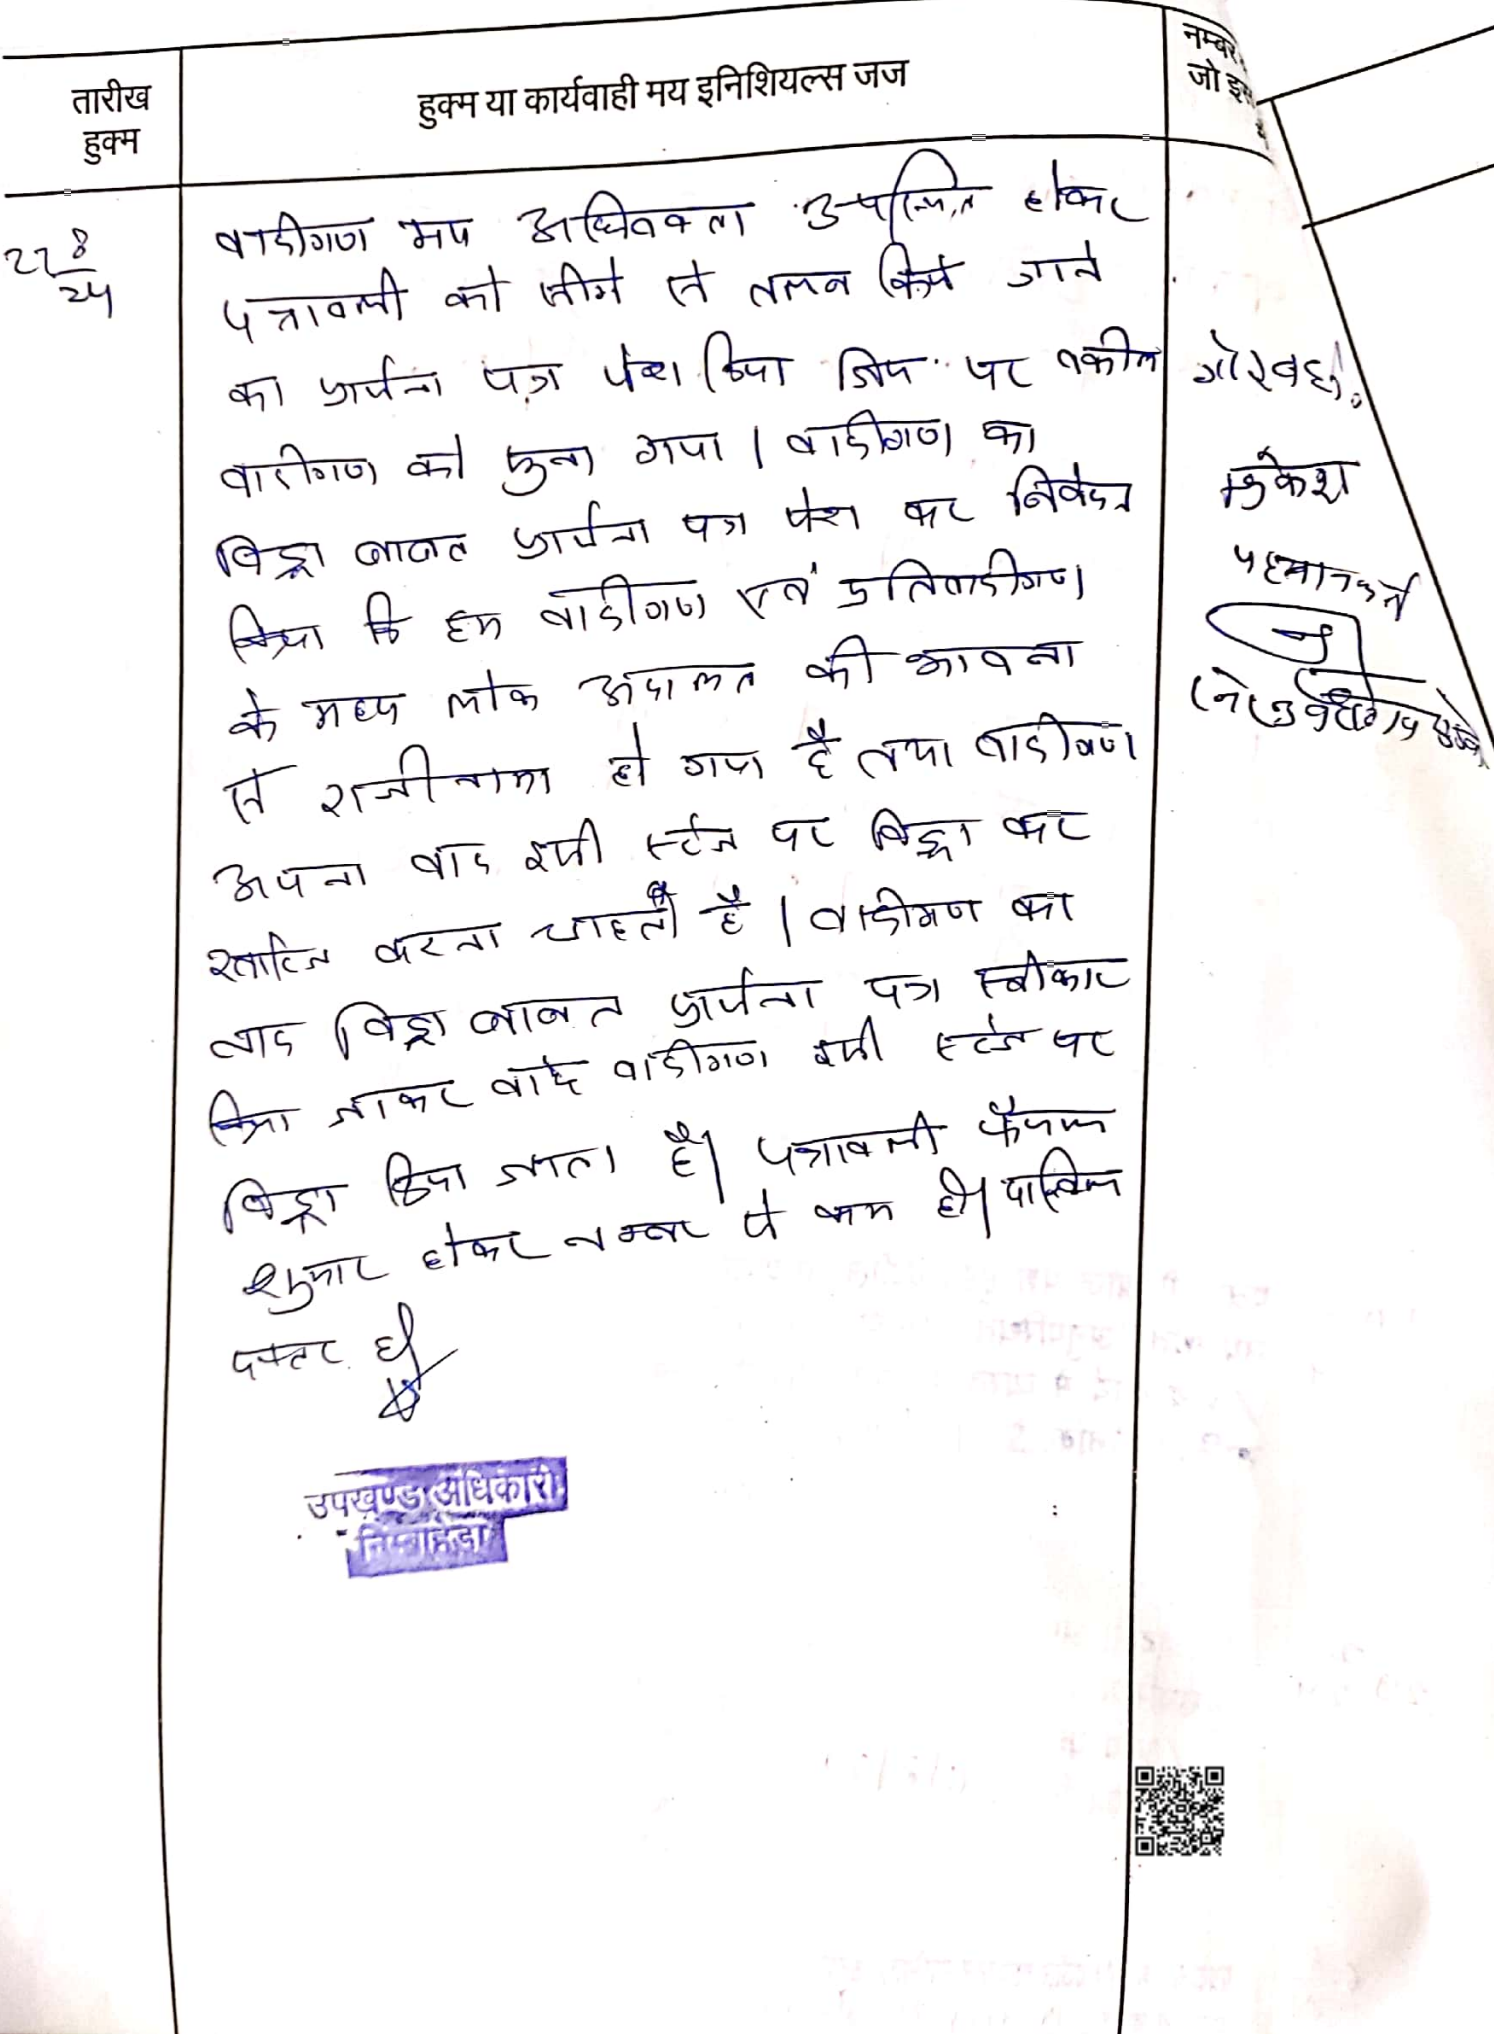 तारीख
हुक्म
हुक्म या कार्यवाही मय इनिशियल्स जज
नम्बर
जो इस
22 8
24
वादीगण मय अधिवक्ता उपस्थित होकर
पत्रावली को सीगे से तलब किये जाने
का प्रार्थना पत्र पेश किया जिस पर वकील
वादीगण को सुना गया । वादीगण का
विड्रा बाबत प्रार्थना पत्र पेश कर निवेदन
किया कि हम वादीगण एवं प्रतिवादीगण
के मध्य लोक अदालत की भावना
से राजीनामा हो गया है तथा वादीगण
अपना वाद इसी स्टेज पर विड्रा कर
खारिज करना चाहते है । वादीगण का
वाद विड्रा बाबत प्रार्थना पत्र स्वीकार
किया जाकर वाद वादीगण इसी स्टेज पर
विड्रा किया जाता है। पत्रावली फैसल
शुमार होकर नम्बर से कम हो। दाखिल
दफ्तर हो
उपखण्ड अधिकारी
निम्बाहेडा
मुकेश
पहचानकर्ता